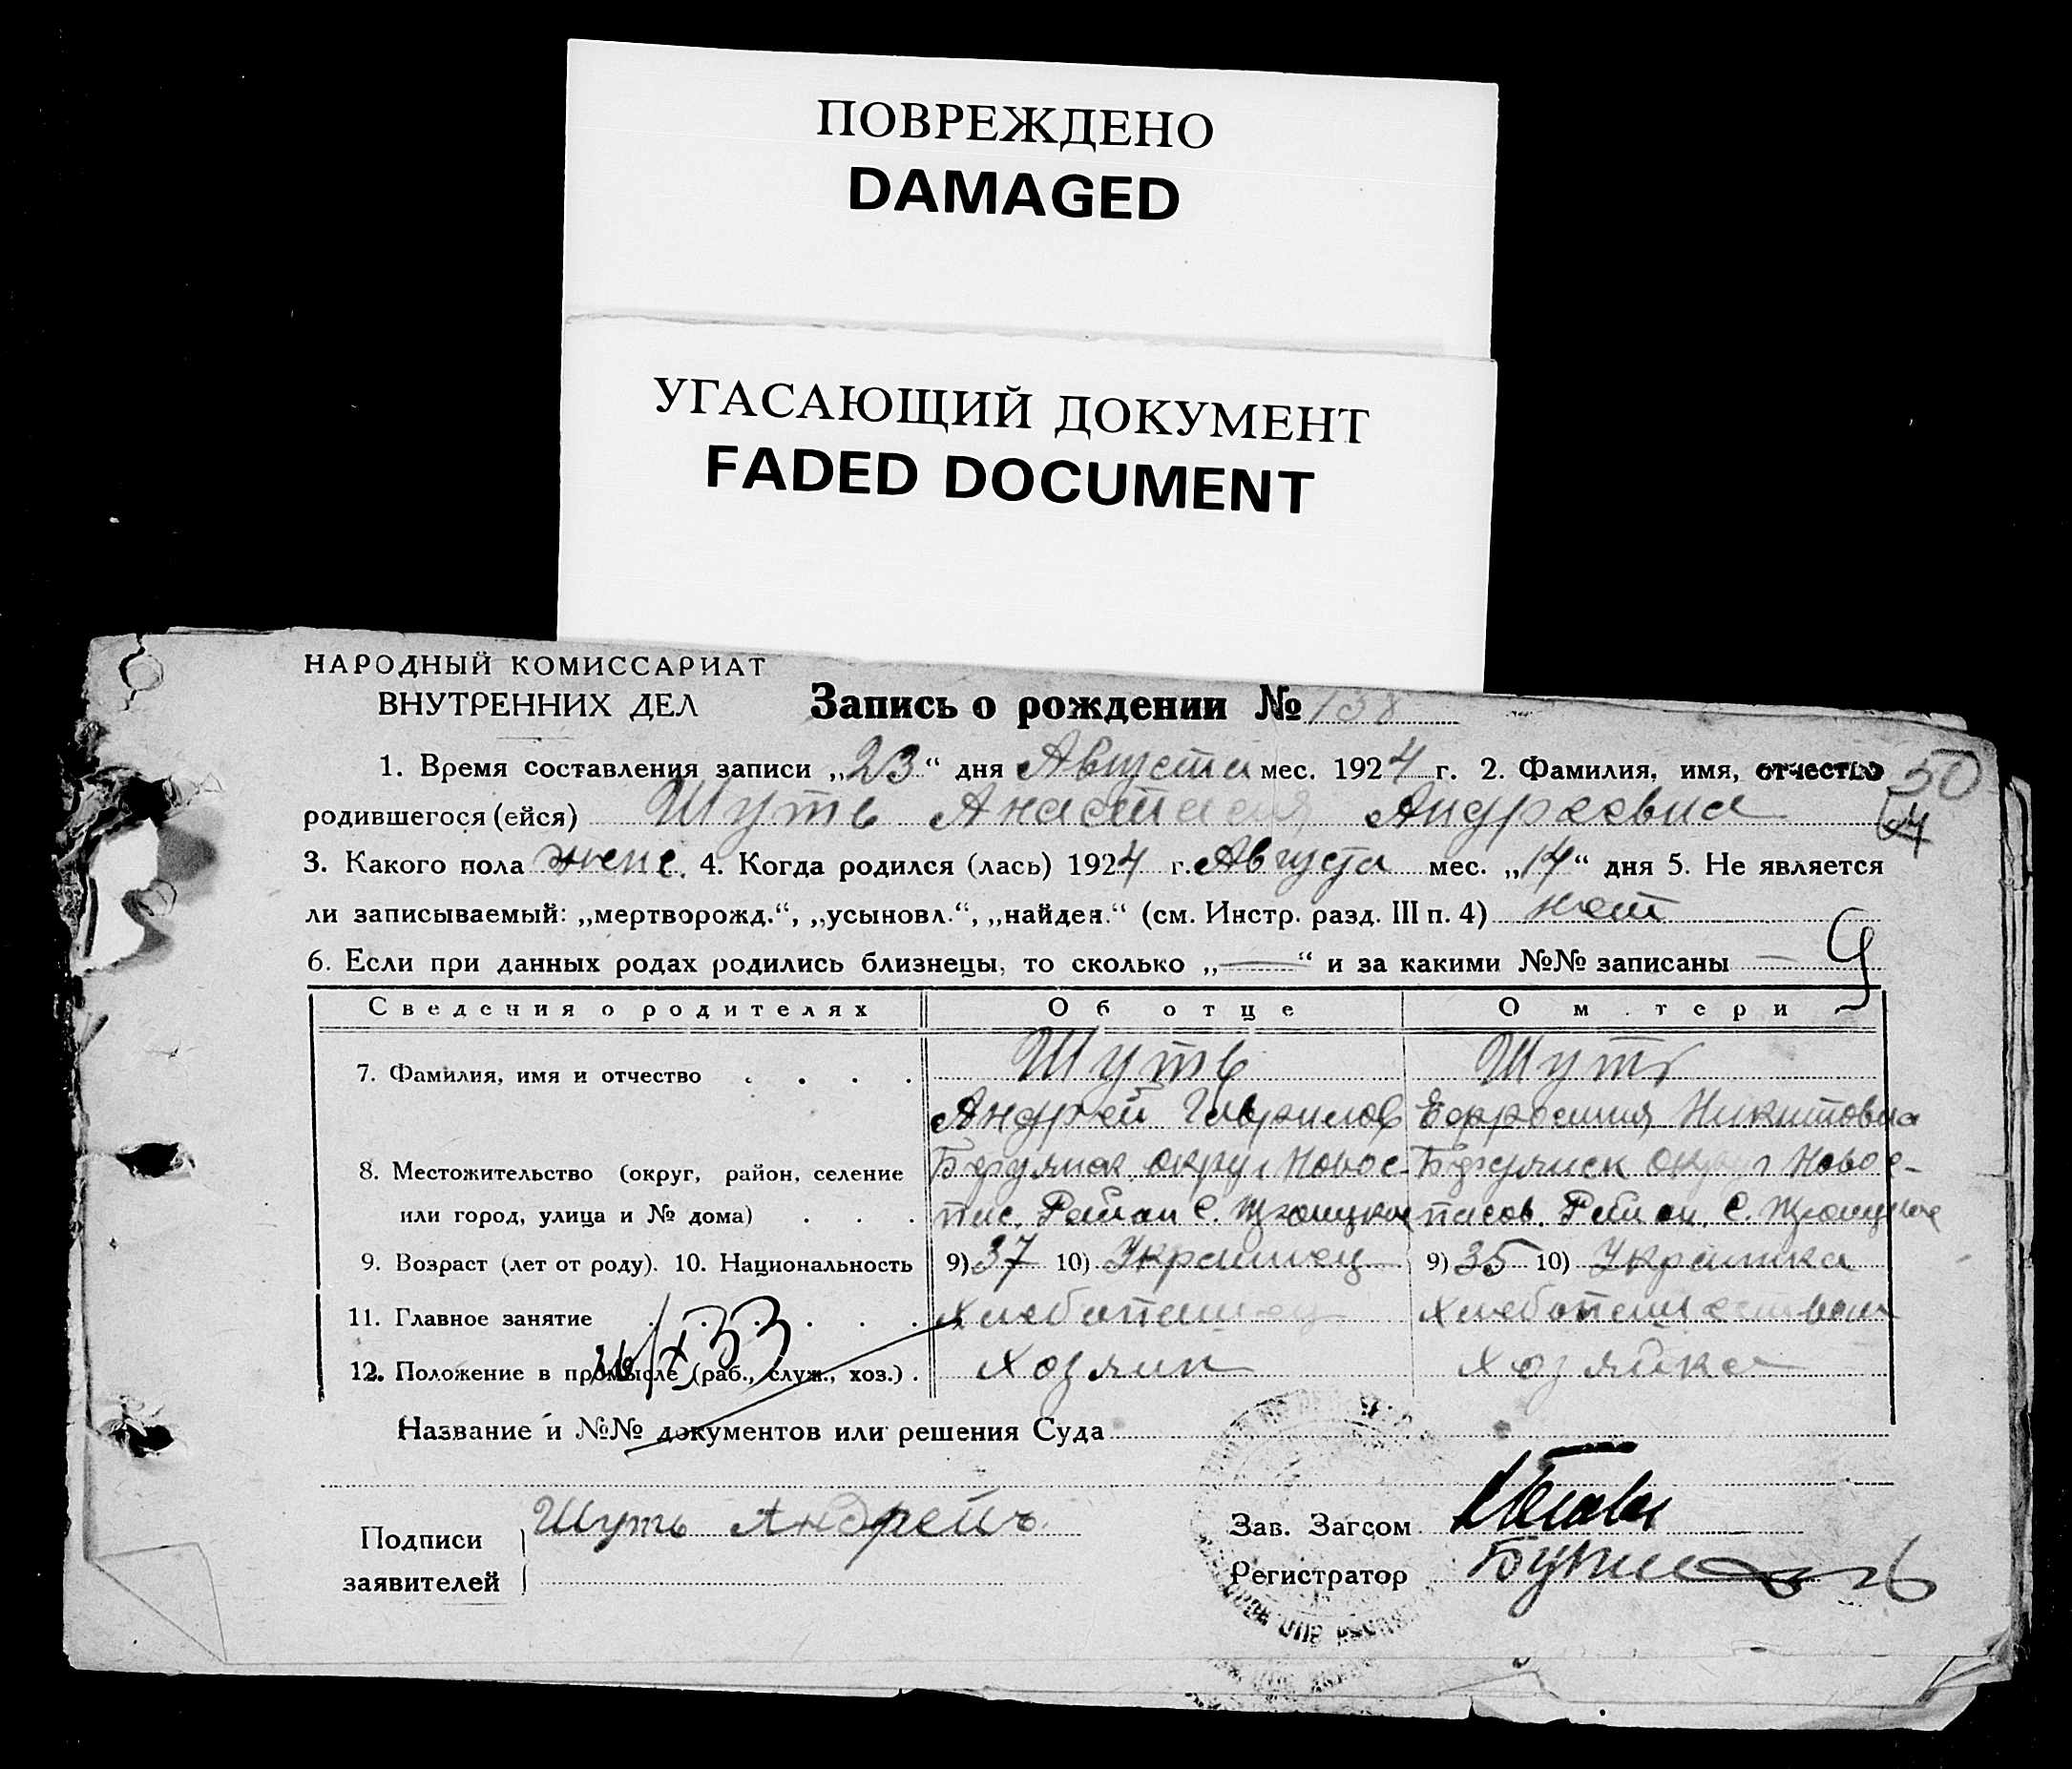 ПОВРЕЖДЕНО
DAMAGED
УГАСАЮЩИЙ ДОКУМЕНТ
FADED DOCUMENT
НАРОДНЫЙ КОМИССАРИАТ
ВНУТРЕННИХ ДЕЛ
Запись о рождении № 138
1. Время составления записи „23“ дня Августа мес. 1924 г. 2. Фамилия, имя, отчество
50
родившегося (ейся) Шуть Анастасия Андреевна
3. Какого пола женс. 4. Когда родился (лась) 1924 г. Августа мес. „14“ дня 5. Не является
ли записываемый: „мертворожд.“, „усыновл.“, „найден.“ (см. Инстр. разд. III п. 4) нет
6. Если при данных родах родились близнецы, то сколько „—“ и за какими №№ записаны —
Сведения о родителях Об отце О м тери
7. Фамилия, имя и отчество . . . . Шуть Шуть
Андрей Гаврилов Ефросиния Никитовна
8. Местожительство (округ, район, селение Бердянск округ Новос- Бердянск округ Новос-
или город, улица и № дома) . . . пас. Район С. Троицкое пасов. Район. С. Троицкое
9. Возраст (лет от роду). 10. Национальность 9) 37 10) Украинец 9) 35 10) Украинка
11. Главное занятие . . . . . . Хлебопашец Хлебопашеством
12. Положение в промысле (раб., служ., хоз.) . Хозяин Хозяйка
Название и №№ документов или решения Суда
Подписи заявителей Шуть Андрейъ
Зав. Загсом
Регистратор